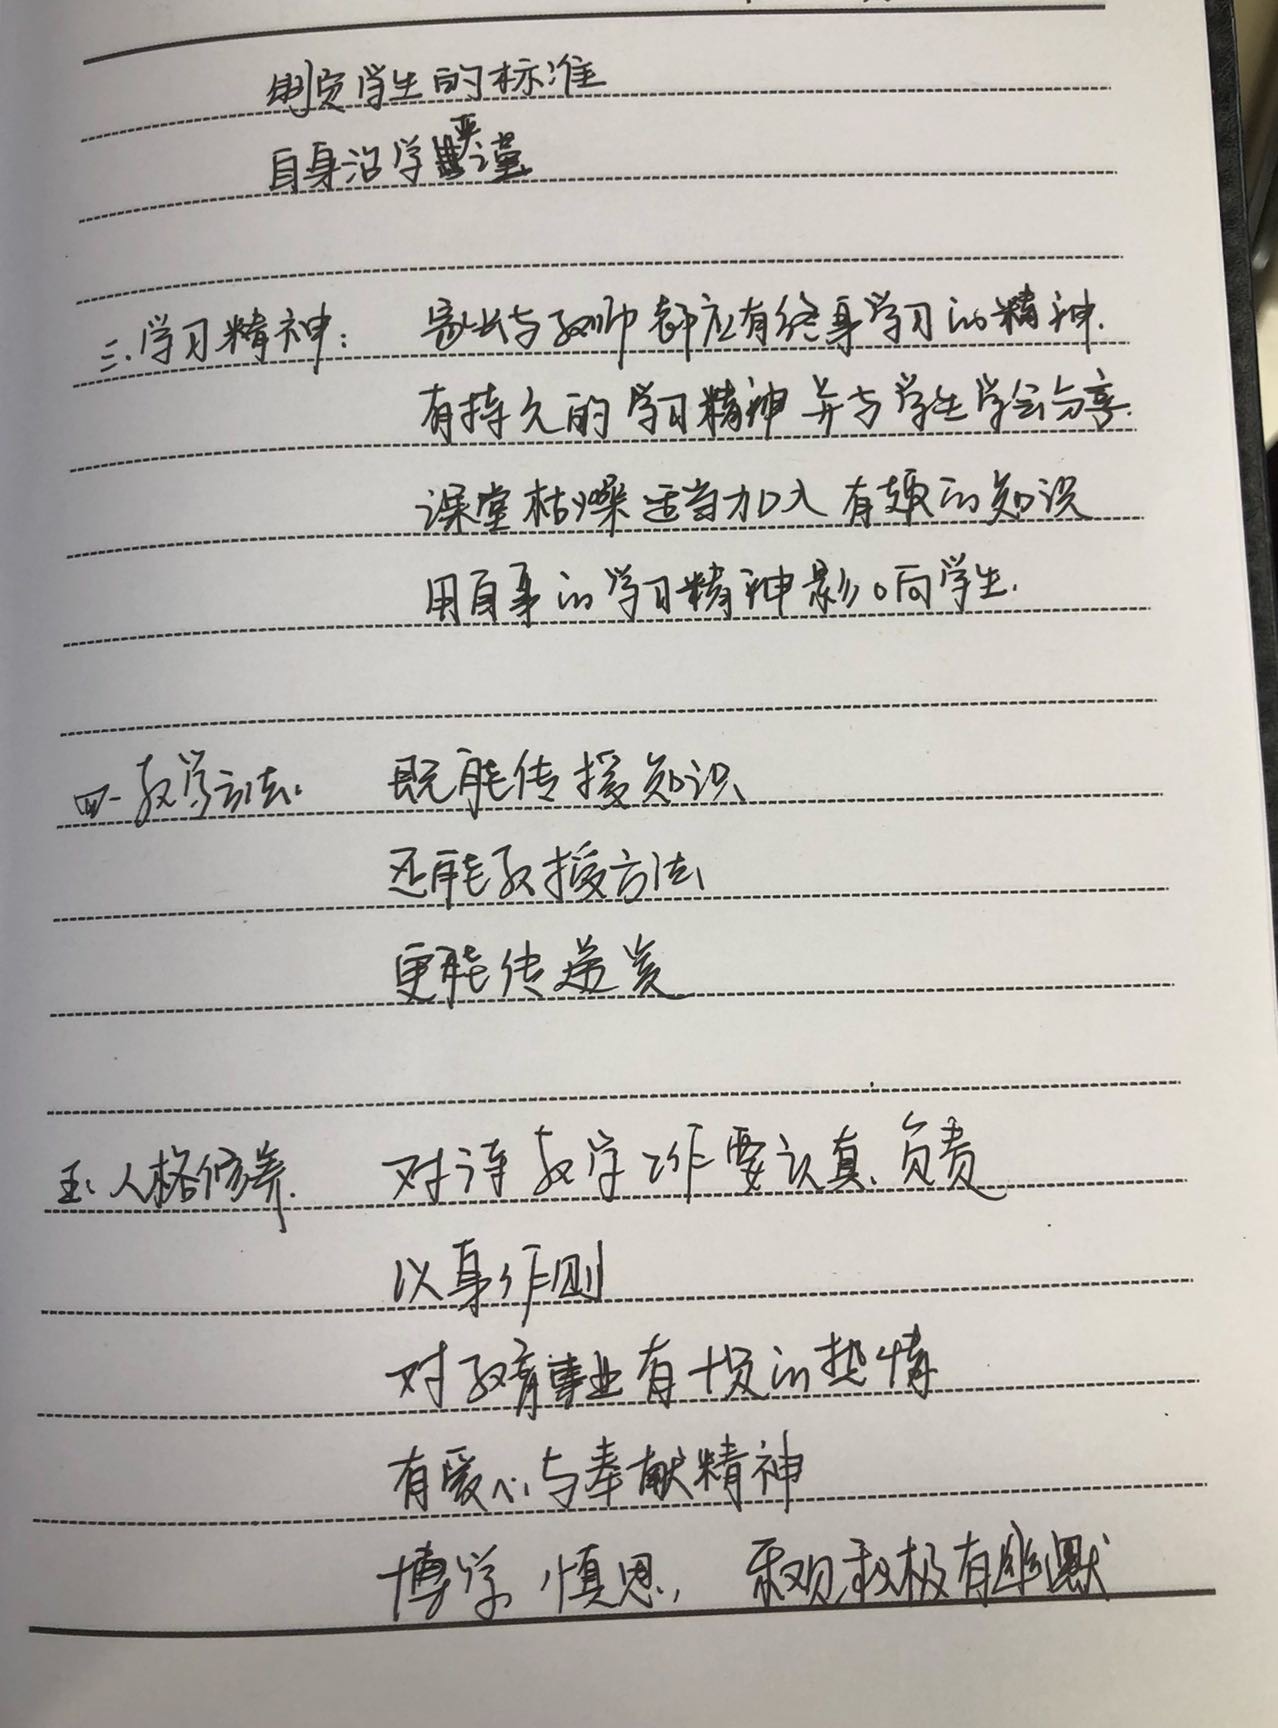 制定学生的标准
自身治学严谨
三.学习精神: 家长与教师都应有终身学习的精神.
有持久的学习精神并与学生学会分享.
课堂枯燥适当加入有趣的知识
用自身的学习精神影响学生.
四.教学方法. 既能传授知识
还能教授方法
更能传递爱
五.人格修养. 对待教学工作要认真、负责
以身作则
对教育事业有十足的热情
有爱心与奉献精神
博学,慎思, 乐观积极有幽默